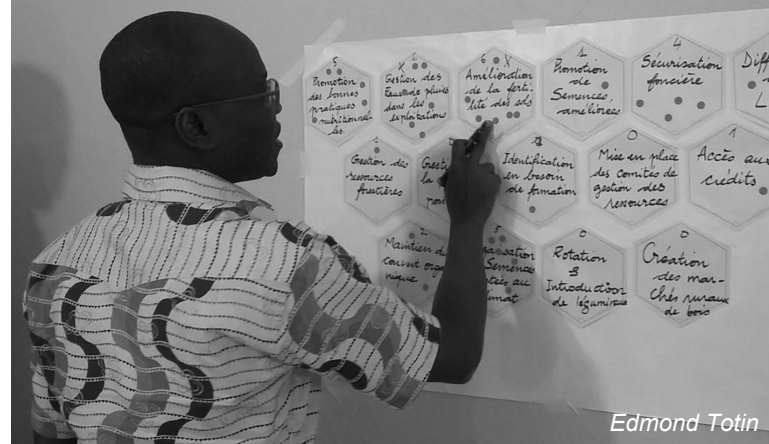 5
Promotion
des bonnes
pratiques
nutritionnel-
les
X 6
Gestion des
Eaux de pluies
dans les
exploitations
6 X
Amélioration
de la ferti-
lité des sols
1
Promotion
de
Semences
améliorées
4
Sécurisation
foncière
Diff
L
1
Gestion des
ressources
forestières
Gest
la
1
Identification
en besoin
de formation
0
Mise en place
des comités de
gestion des
ressources
1
Accès aux
crédits
2
Maintien du
couvert orga
nique
5
sation
Semences
ptées au
imat
0
Rotation
Introduction
de légumineuse
0
Création
des mar-
chés ruraux
de bois
Edmond Totin